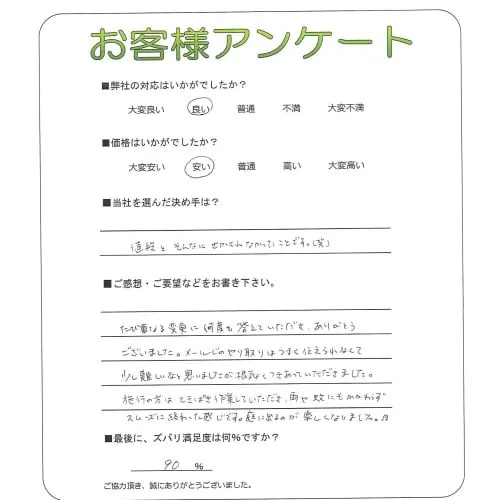 お客様アンケート
■弊社の対応はいかがでしたか？
大変良い 良い 普通 不満 大変不満
■価格はいかがでしたか？
大変安い 安い 普通 高い 大変高い
■当社を選んだ決め手は？
値段と そんなに せかされなかったことです。(笑)
■ご感想・ご要望などをお書き下さい。
たび重なる変更に何度も答えていただき、ありがとう
ございました。メールでのやり取りはうまく伝えられなくて
少し難しいなと思いましたが根気よくつきあっていただきました。
施行の方は てきぱき作業していただき、雨や蚊にもかかわらず
スムーズに終わった感じです。庭に出るのが楽しくなりました。
■最後に、ズバリ満足度は何%ですか？
90 %
ご協力頂き、誠にありがとうございました。